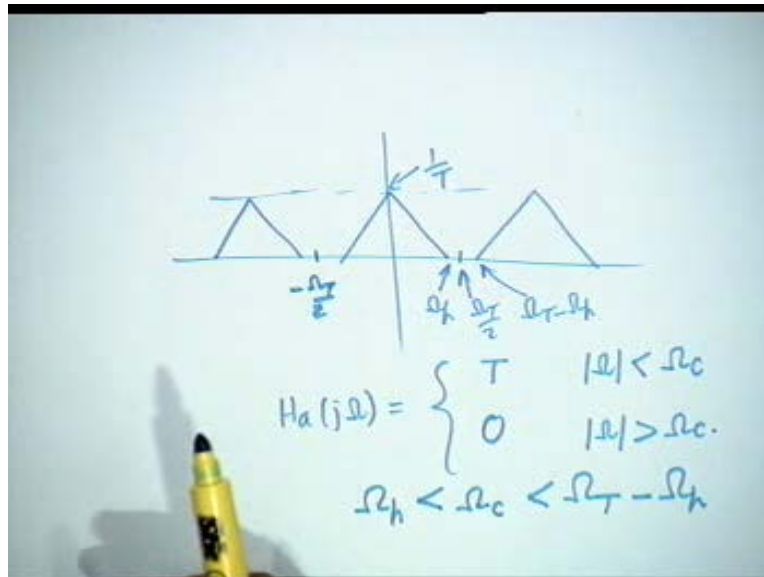 1/T
-Ω_T/2
Ω_h Ω_T/2 Ω_T-Ω_h
Ha(jΩ) = { T |Ω| < Ωc
0 |Ω| > Ωc.
Ω_h < Ω_c < Ω_T - Ω_h